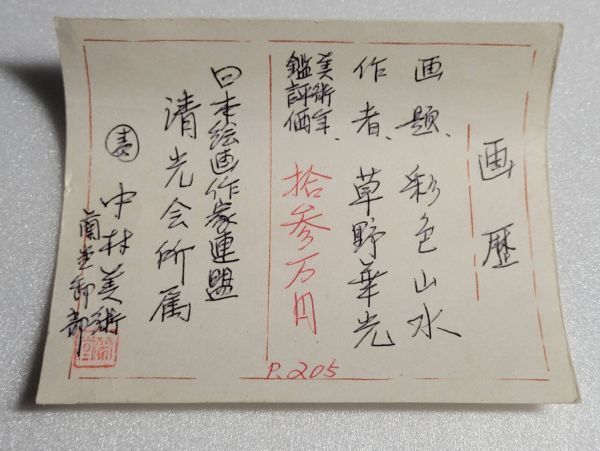 画歴
画題、彩色山水
作者、草野華光
美術年鑑評価、拾参万円
P.205
日本絵画作家連盟
清光会所属
中村美術
蘭堂卸部